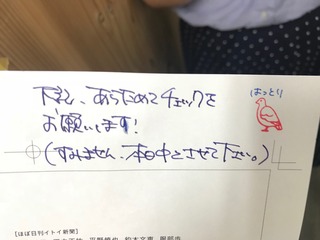 はっとり
下記、あらためてチェックを
お願いします!
(すみません、本日中とさせて下さい。)
[ほぼ日刊イトイ新聞]